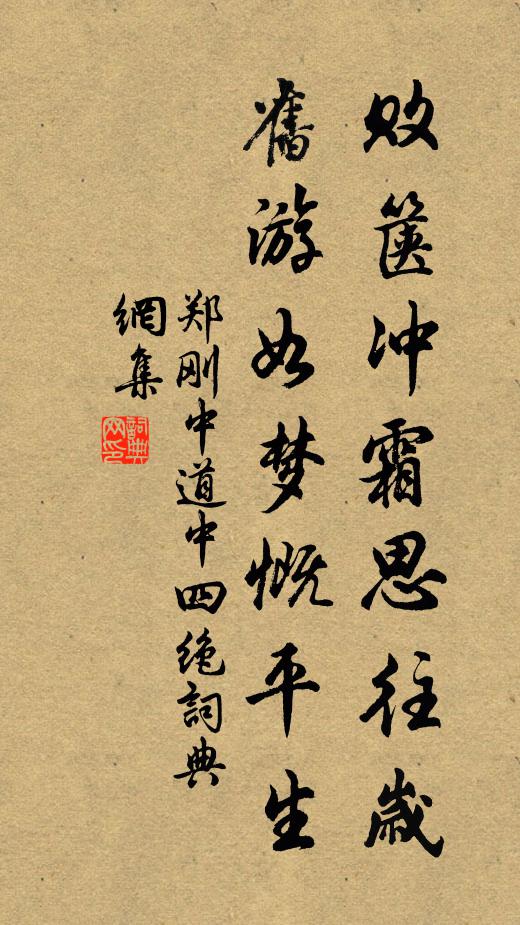 败箧冲霜思往岁
舊游如梦慨平生
郑刚中道中四绝詞典
網集
詞典
网印